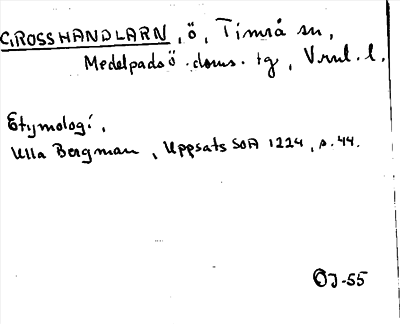 GROSSHANDLARN, ö, Timrå sn,
Medelpads ö. doms. tg, Vrnl. l.
Etymologi,
Ulla Bergman, Uppsats SOA 1224, s. 44.
OJ-55